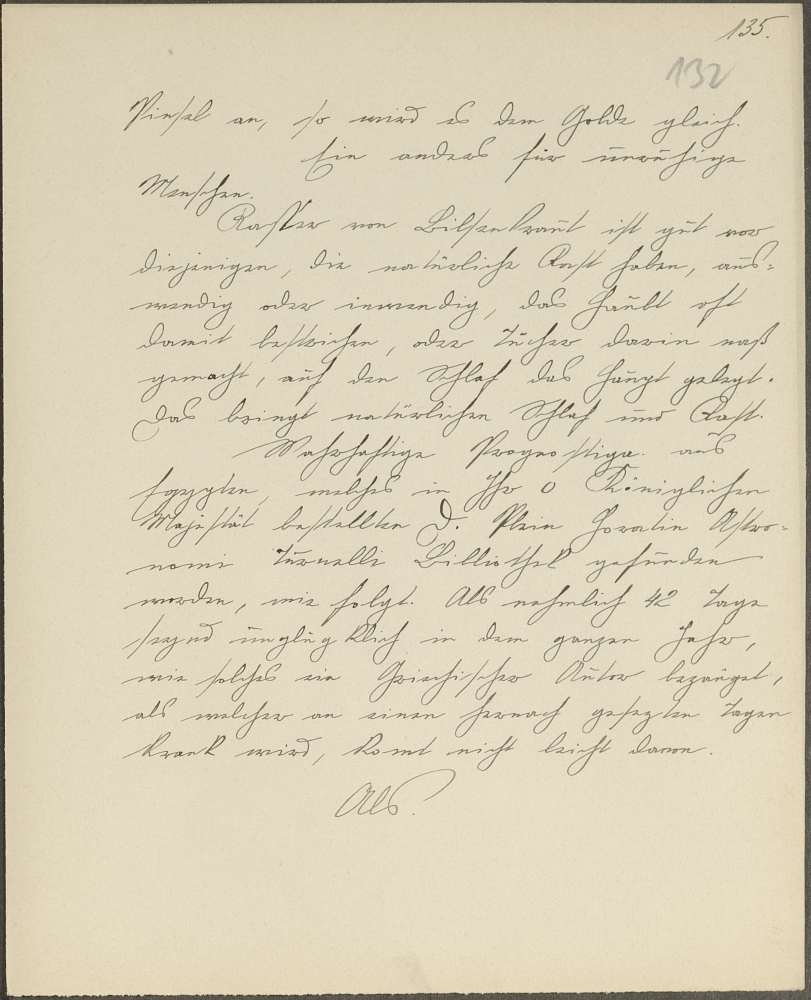 135.
132
Pinsel an, so wird es dem Golde gleich.
Ein anders für unruhige
Menschen.
Wasser von Bilsenkraut ist gut vor
diejenigen, die natürliche Rast haben, aus-
wendig oder inwendig, das Haubt oft
damit bestrichen, oder Tücher darin naß
gemacht, auf den Schlaf das Haupt gelegt.
Das bringt natürlichen Schlaf und Rast.
Wahrhaftige Prognostiga aus
Egypten, welches in Ihr O Königlichen
Majestät bestellten D. Plein Horatin Astro-
nomi Turnelli Billiothek gefunden
worden, wie folgt. Als nehmlich 42 Tage
seynd unglügklich in dem ganzen Jahr,
wie solches ein Griechischer Autor bezeuget,
als welcher an einen hernach gesezten Tagen
krank wird, komt nicht leicht davon.
Als.